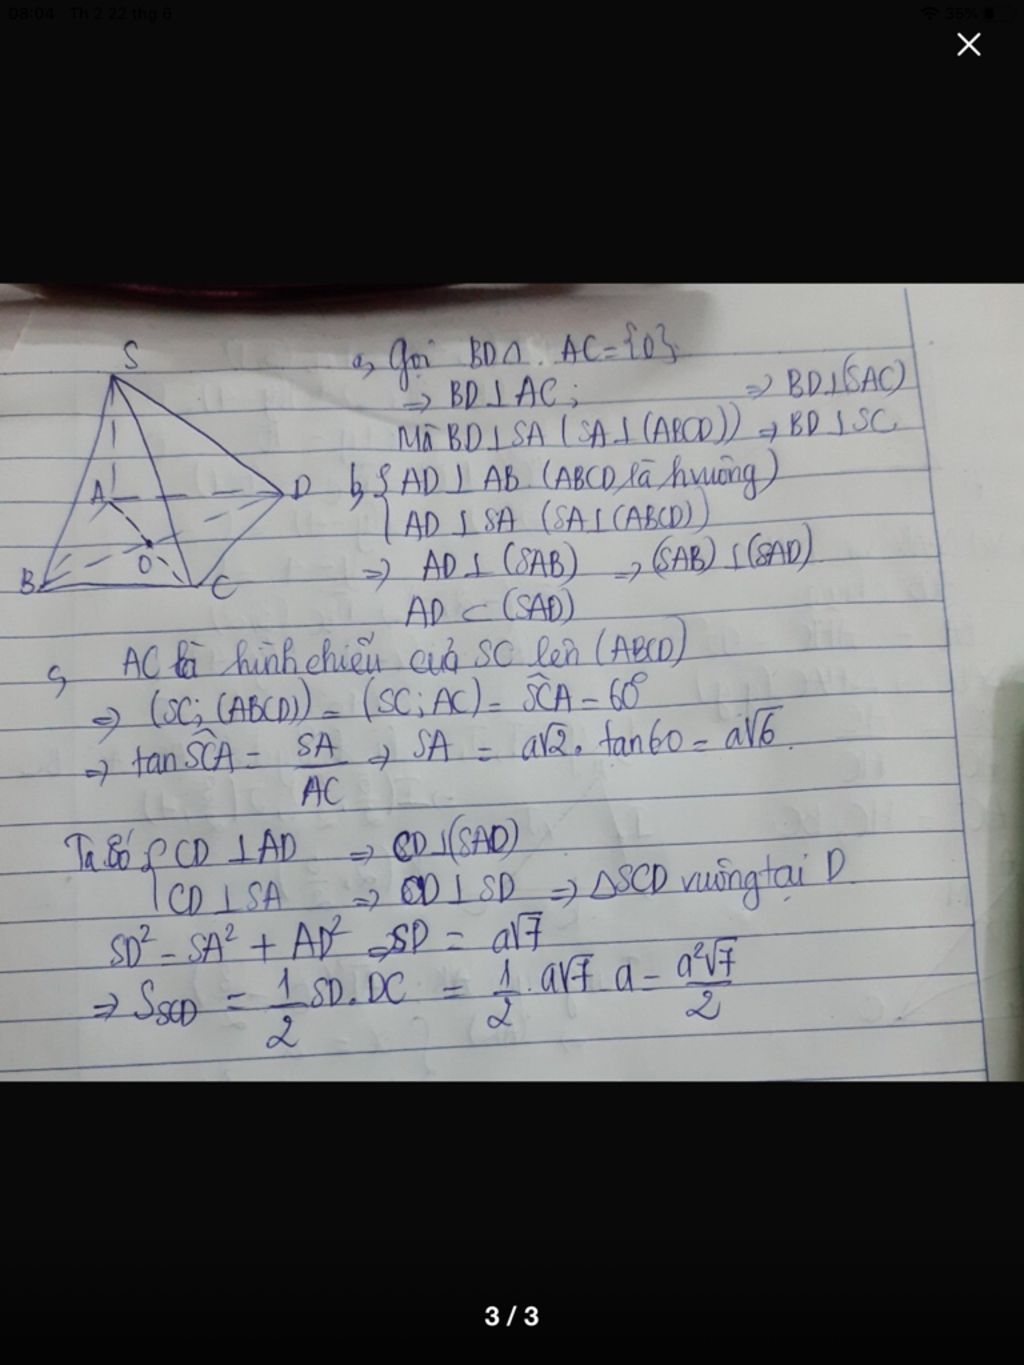 08:04 Th 2 22 thg 6
35%
S
A
D
B
O
C
a, Gọi BD∩ AC={O}
⇒ BD⊥AC; ⇒ BD⊥(SAC)
Mà BD⊥SA (SA⊥(ABCD)) ⇒ BD⊥SC
b, { AD⊥AB (ABCD là hvuông)
AD⊥SA (SA⊥(ABCD))
⇒ AD⊥(SAB) ⇒ (SAB)⊥(SAD)
AD⊂(SAD)
c, AC là hình chiếu của SC lên (ABCD)
⇒ (SC;(ABCD)) = (SC;AC) = SĈA = 60°
⇒ tanSĈA = SA/AC ⇒ SA = a√2. tan60 = a√6
Ta có { CD⊥AD ⇒ CD⊥(SAD)
CD⊥SA ⇒ CD⊥SD ⇒ ΔSCD vuông tại D
SD² = SA² + AD² ⇒ SD = a√7
⇒ S_SCD = 1/2 SD.DC = 1/2 . a√7 a = a²√7/2
3 / 3